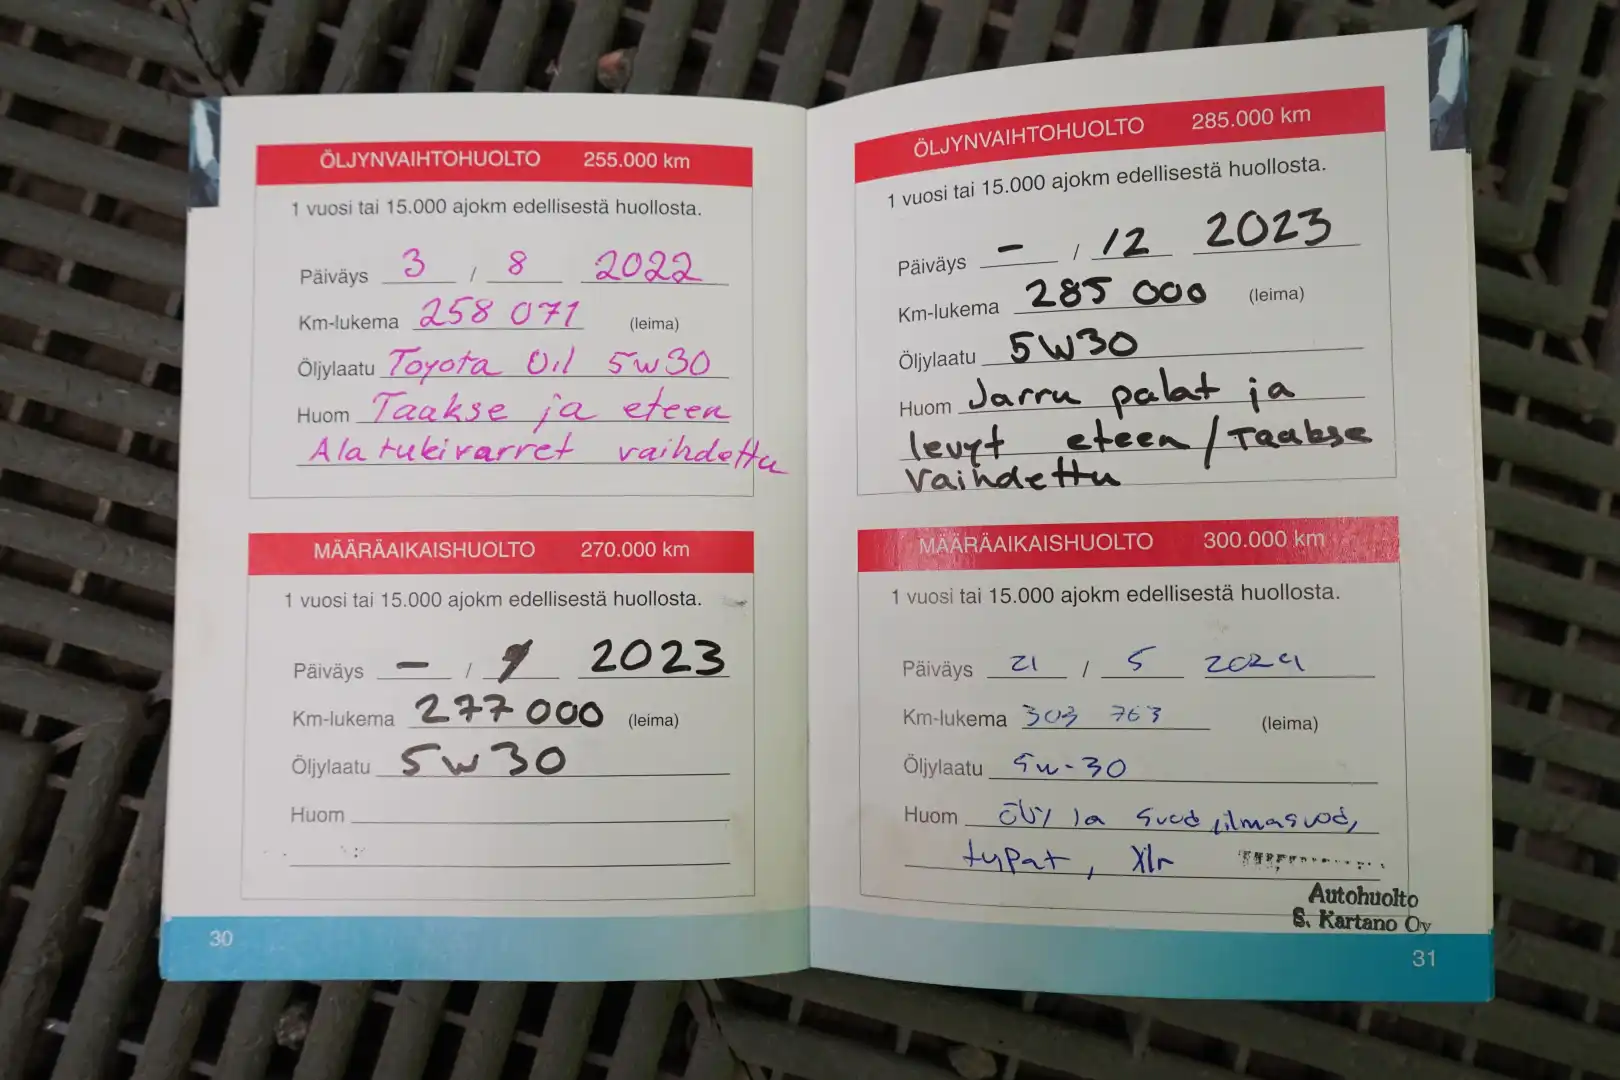 ÖLJYNVAIHTOHUOLTO 255.000 km
1 vuosi tai 15.000 ajokm edellisestä huollosta.
Päiväys 3 / 8 2022
Km-lukema 258 071 (leima)
Öljylaatu Toyota Oil 5w30
Huom Taakse ja eteen
Alatukivarret vaihdettu
MÄÄRÄAIKAISHUOLTO 270.000 km
1 vuosi tai 15.000 ajokm edellisestä huollosta.
Päiväys – / 2023
Km-lukema 277 000 (leima)
Öljylaatu 5w30
Huom
30
ÖLJYNVAIHTOHUOLTO 285.000 km
1 vuosi tai 15.000 ajokm edellisestä huollosta.
Päiväys – / 12 2023
Km-lukema 285 000 (leima)
Öljylaatu 5W30
Huom Jarru palat ja
levyt eteen / Taakse
Vaihdettu
MÄÄRÄAIKAISHUOLTO 300.000 km
1 vuosi tai 15.000 ajokm edellisestä huollosta.
Päiväys 21 / 5 2024
Km-lukema 303 763 (leima)
Öljylaatu 5w-30
Huom öljy ja suod, ilmasuod,
Autohuolto
S. Kartano Oy
31